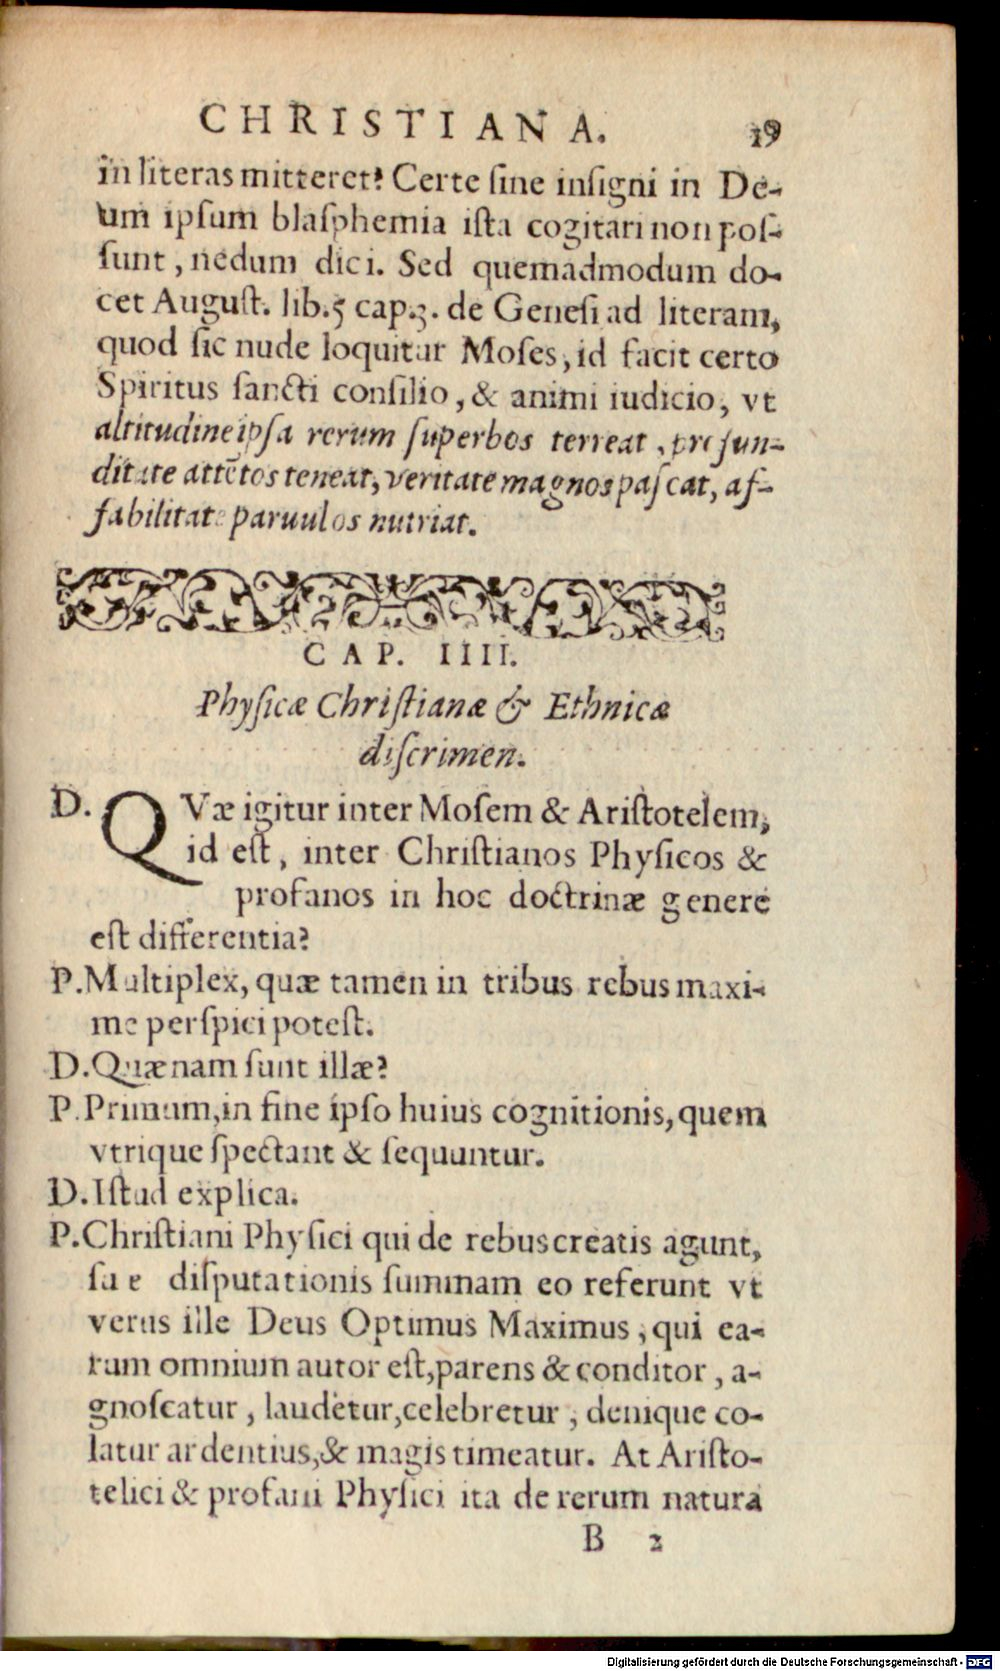 CHRISTIANA. 19
in literas mitteret? Certe ſine inſigni in De-
um ipſum blaſphemia iſta cogitari non poſ-
ſunt, nedum dici. Sed quemadmodum do-
cet Auguſt. lib.5 cap.3. de Geneſi ad literam,
quod ſic nude loquitur Moſes, id facit certo
Spiritus ſancti conſilio, & animi iudicio, vt
altitudine ipſa rerum ſuperbos terreat, profun-
ditate attētos teneat, veritate magnos paſcat, af-
fabilitate paruulos nutriat.
CAP. IIII.
Phyſicæ Chriſtianæ & Ethnicæ
diſcrimen.
D. QVæ igitur inter Moſem & Ariſtotelem,
id eſt, inter Chriſtianos Phyſicos &
profanos in hoc doctrinæ genere
eſt differentia?
P. Multiplex, quæ tamen in tribus rebus maxi-
me perſpici poteſt.
D. Quænam ſunt illæ?
P. Primum, in fine ipſo huius cognitionis, quem
vtrique ſpectant & ſequuntur.
D. Iſtud explica.
P. Chriſtiani Phyſici qui de rebus creatis agunt,
ſuæ diſputationis ſummam eo referunt vt
verus ille Deus Optimus Maximus, qui ea-
rum omnium autor eſt, parens & conditor, a-
gnoſcatur, laudetur, celebretur, denique co-
latur ardentius, & magis timeatur. At Ariſto-
telici & profani Phyſici ita de rerum natura
B 2
Digitalisierung gefördert durch die Deutsche Forschungsgemeinschaft - DFG